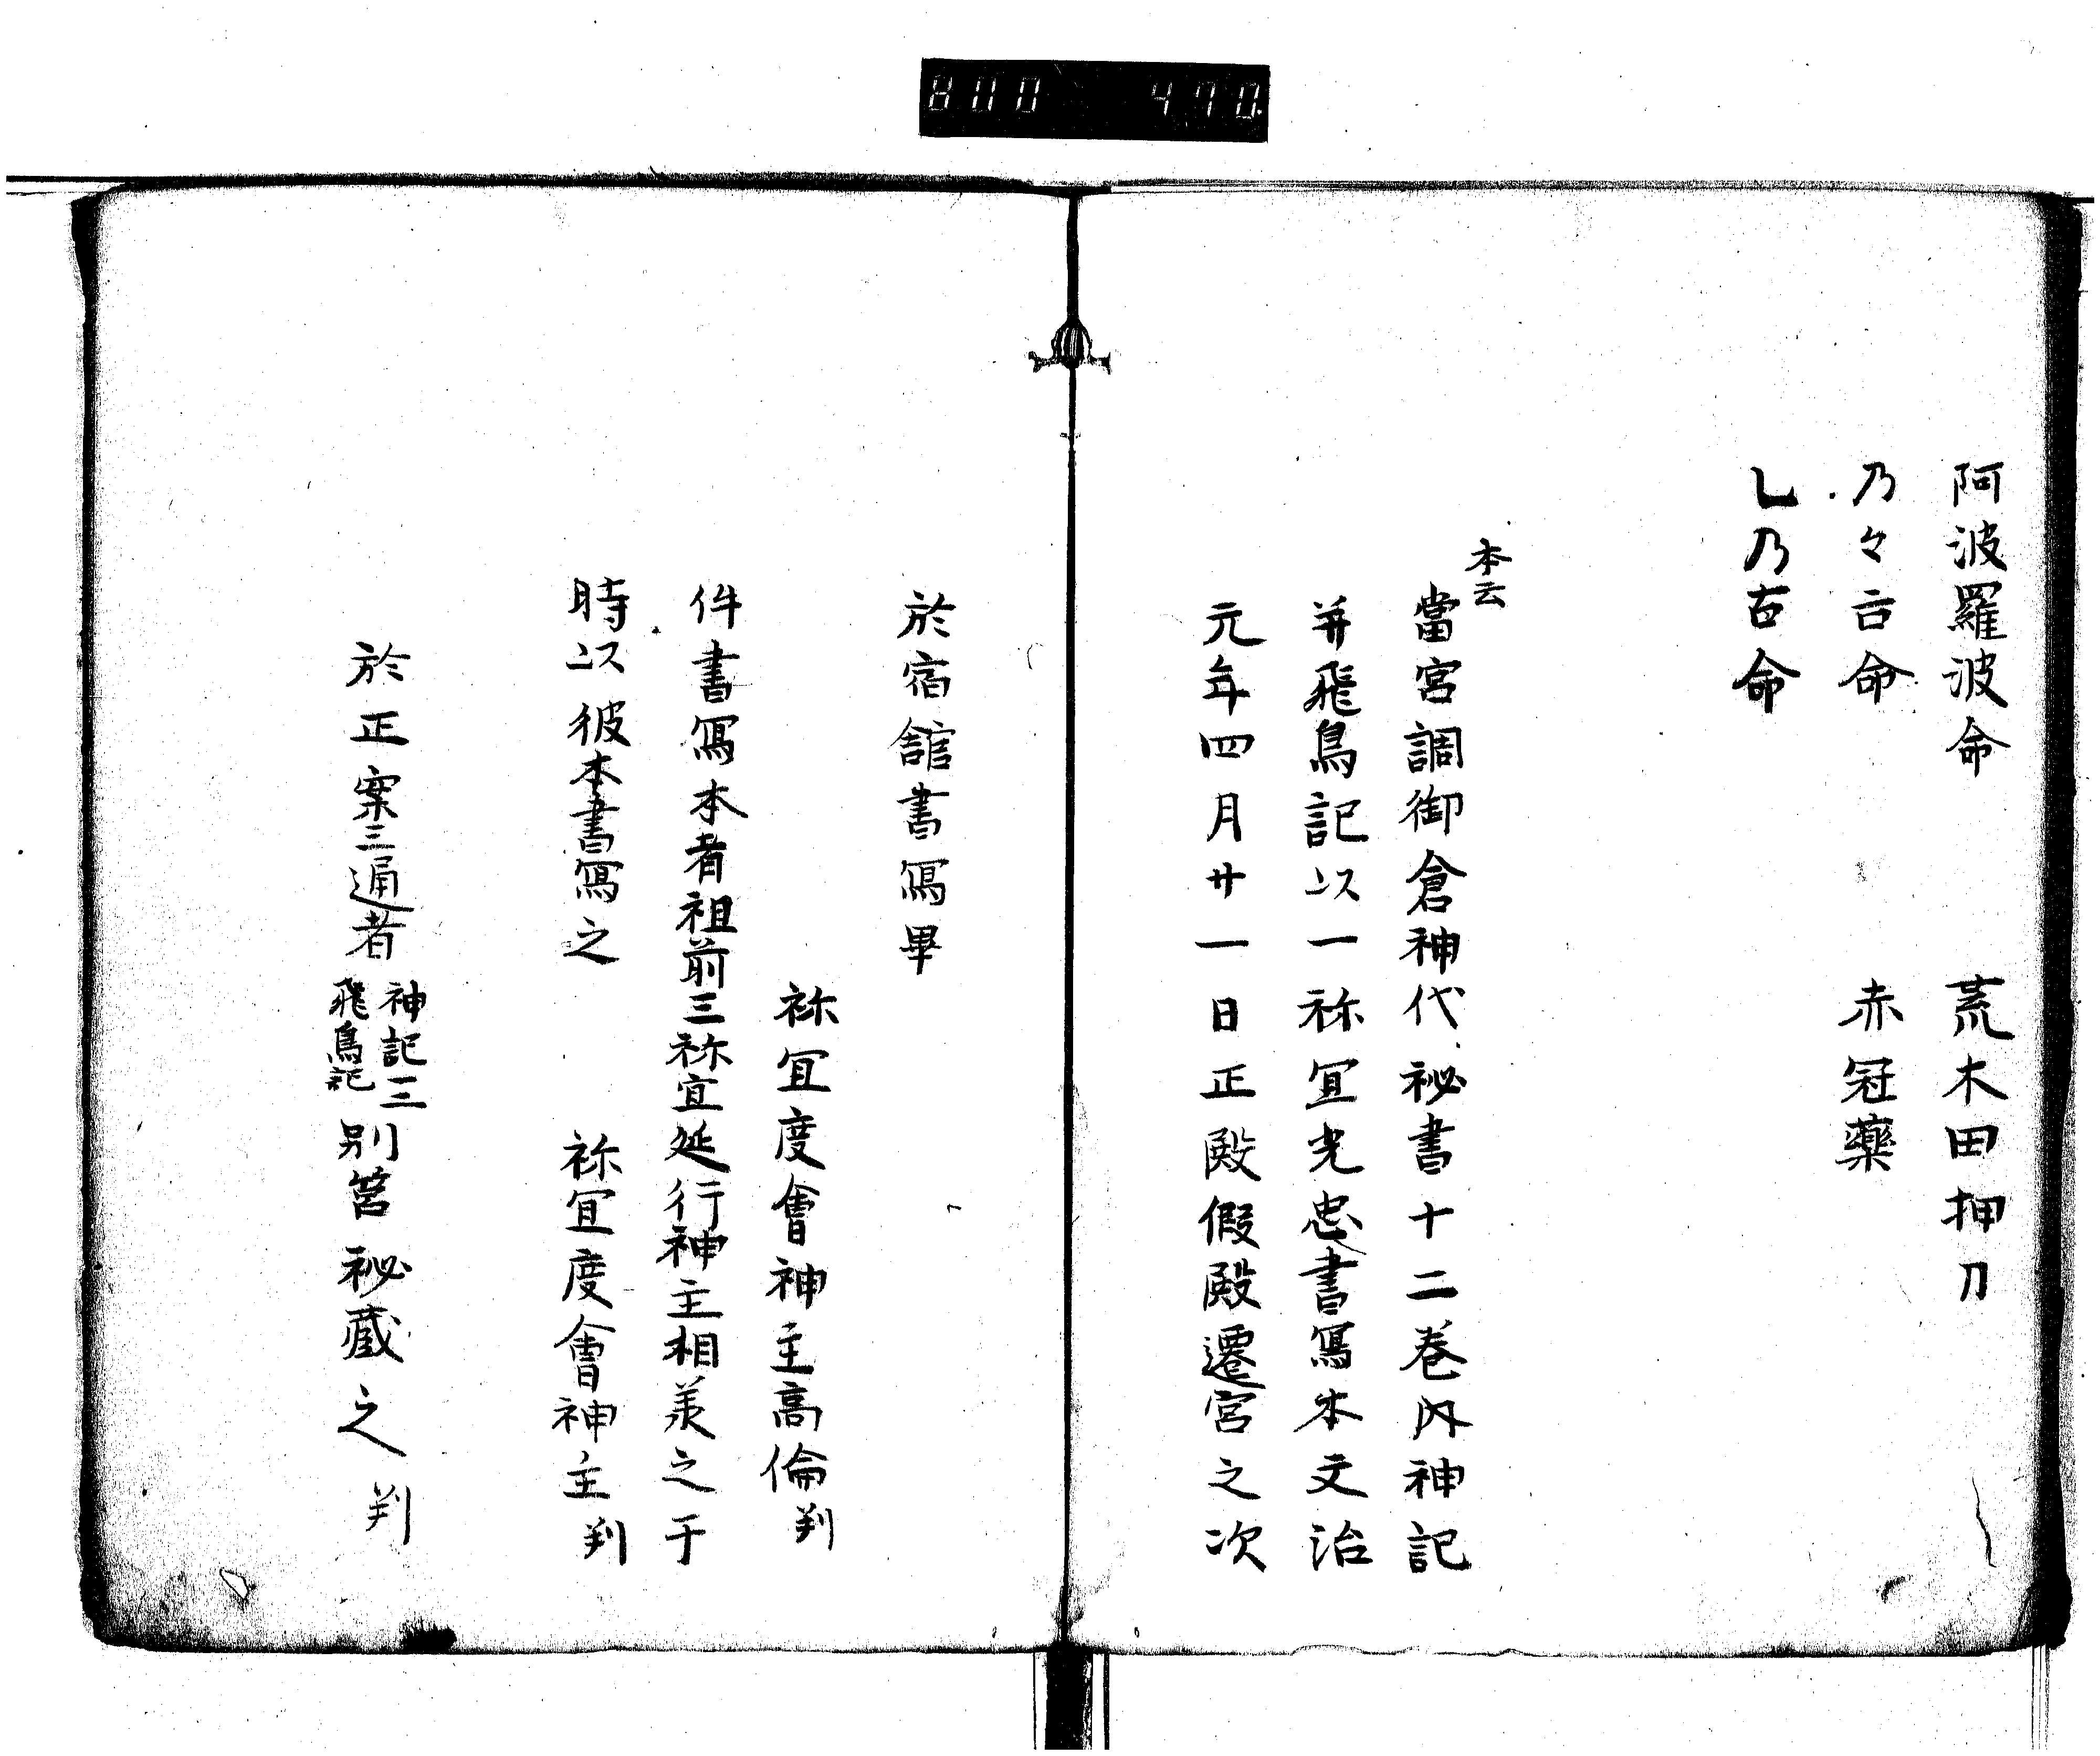 800 470
阿波羅波命 荒木田押刀
乃々古命 赤冠藥
乚乃古命
本云
當宮調御倉神代祕書十二卷内神記
并飛鳥記以一祢冝光忠書寫本文治
元年四月廿一日正殿假殿遷宮之次
於宿舘書寫畢
祢冝度會神主高倫判
件書寫本者祖前三祢宜延行神主相羨之于
時以彼本書寫之
祢冝度會神主判
於正案三通者 神記三 飛鳥記 别筥祕蔵之判